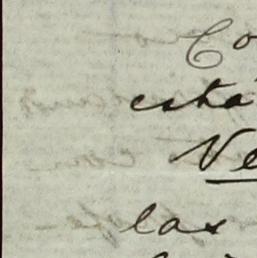 Co
está
Ve
las